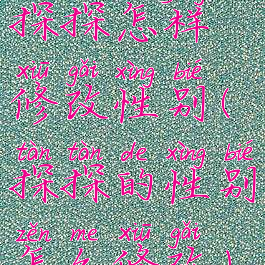 探探怎样
xiū gǎi xìng bié
修改性别(
tàn tàn de xìng bié
探探的性别
zěn me xiū gǎi
怎么修改)